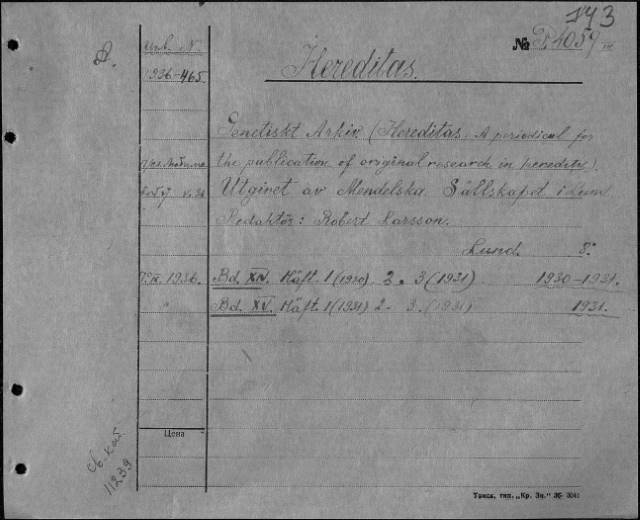 143
№ P. 4059
Инв. №
Hereditas.
1936-465
Genetiskt Arkiv (Hereditas. A periodical for
the publication of original research in heredity).
Utgivet av Mendelska Sällskapet i Lund
Redaktör: Robert Larsson.
Lund. 8°
1936. Bd. XIV. Häft. 1 (1930) 2. 3 (1931) 1930-1931.
" Bd. XV. Häft. 1 (1931) 2- 3. (1931) 1931.
Цена
Св. кат.
11239
Томск, тип. „Кр. Зн." 36 3041